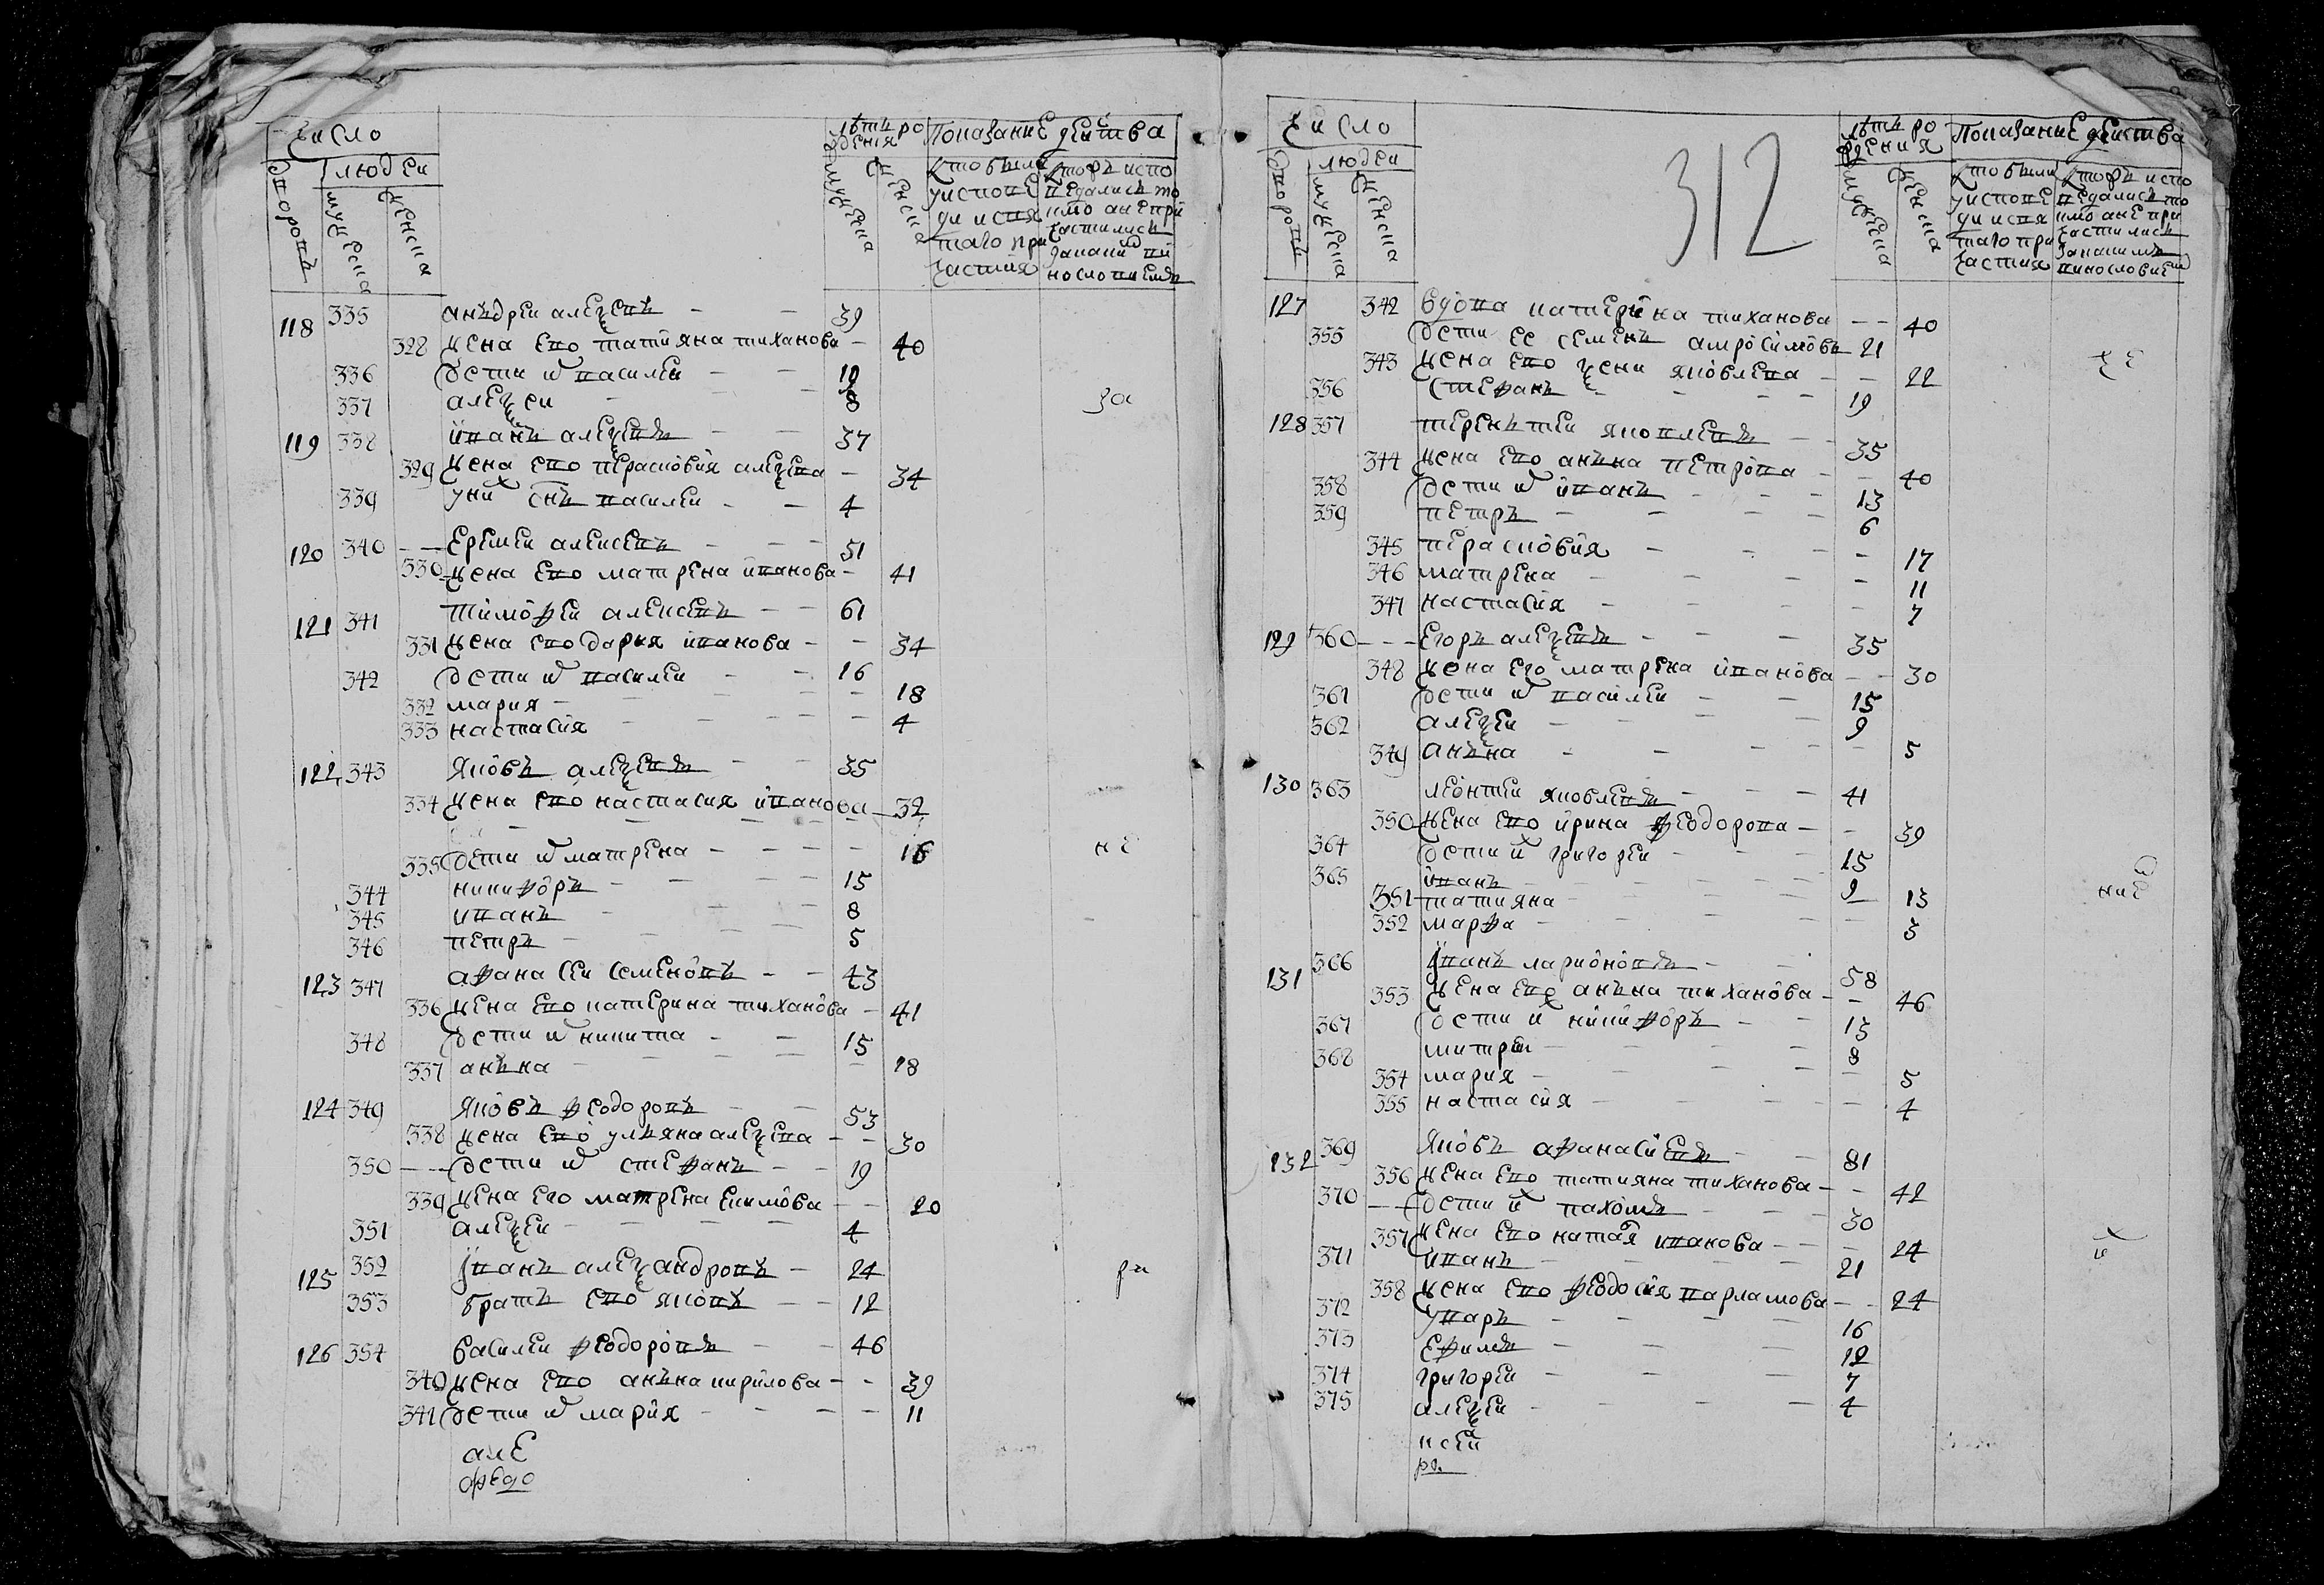 число
людей
дворовъ
мужеска
женска
лѣтъ рождения
мужеска
женска
Показание действа
кто были
у исповеди и свя
таго при
частия
кторъ испо
ведались то
кмо а не при
частились
118 335 анъдрей алеѯевъ 39
328 жена ево татияна тиханова 40
336 дети их василей 10
337 алеѯей 8
за
119 338 иванъ алеѯевъ 37
329 жена ево перасковия алеѯева 34
339 у них снъ василей 4
120 340 еремей алексевъ 51
330 жена ево матрена иванова 41
121 341 тимофей алексевъ 61
331 жена ево дарья иванова 34
342 дети их василей 16
332 мария 18
333 настасия 4
122 343 яковъ алеѯевъ 35
334 жена ево настасия иванова 32
335 дети их матрена 16
не
344 никифоръ 15
345 иванъ 8
346 петръ 5
123 347 афанасей семеновъ 43
336 жена ево катерина тиханова 41
348 дети их никита 15
337 анъна 18
124 349 яковъ феодоровъ 53
338 жена ево ульяна алеѯева 30
350 дети их стефанъ 19
339 жена его матрена екимова 20
351 алеѯей 4
125 352 иванъ алеѯандровъ 24
353 братъ ево яковъ 12
126 354 василей феодоровъ 46
340 жена ево анъна кирилова 39
341 дети их мария 11
але
число
людей
дворовъ
мужеска
женска
312
лѣтъ рождения
мужеска
женска
Показание действа
кто были
у исповеди и свя
таго при
частия
кторъ испо
ведались то
кмо а не при
частились
127 342 вдова катерина тиханова 40
355 дети ее семенъ амросимовъ 21
343 жена ево ѯени яковлева 22
356 стефанъ 19
128 357 терентей яковлевъ 35
344 жена ево анъна петрова 40
358 дети их иванъ 13
359 петръ 6
345 перасковия 17
346 матрена 11
347 настасия 7
129 360 егоръ алеѯевъ 35
348 жена его матрена иванова 30
361 дети их василей 15
362 алеѯей 9
349 анъна 5
130 363 леонтей яковлевъ 41
350 жена ево ирина феодорова 39
364 дети их григорей 15
365 иванъ 9
ние
351 татияна 13
352 марфа 3
131 366 иванъ ларионовъ 58
353 жена ево анъна тиханова 46
367 дети их никифоръ 13
368 митрей 8
354 мария 5
355 настасия 4
132 369 яковъ афанасиевъ 81
356 жена ево татияна тиханова 42
370 дети их пахомъ 30
357 жена ево наталя иванова 24
371 иванъ 21
358 жена ево феодосия варламова 24
372 уваръ 16
373 ефимъ 12
374 григорей 7
375 алеѯей 4
ксей